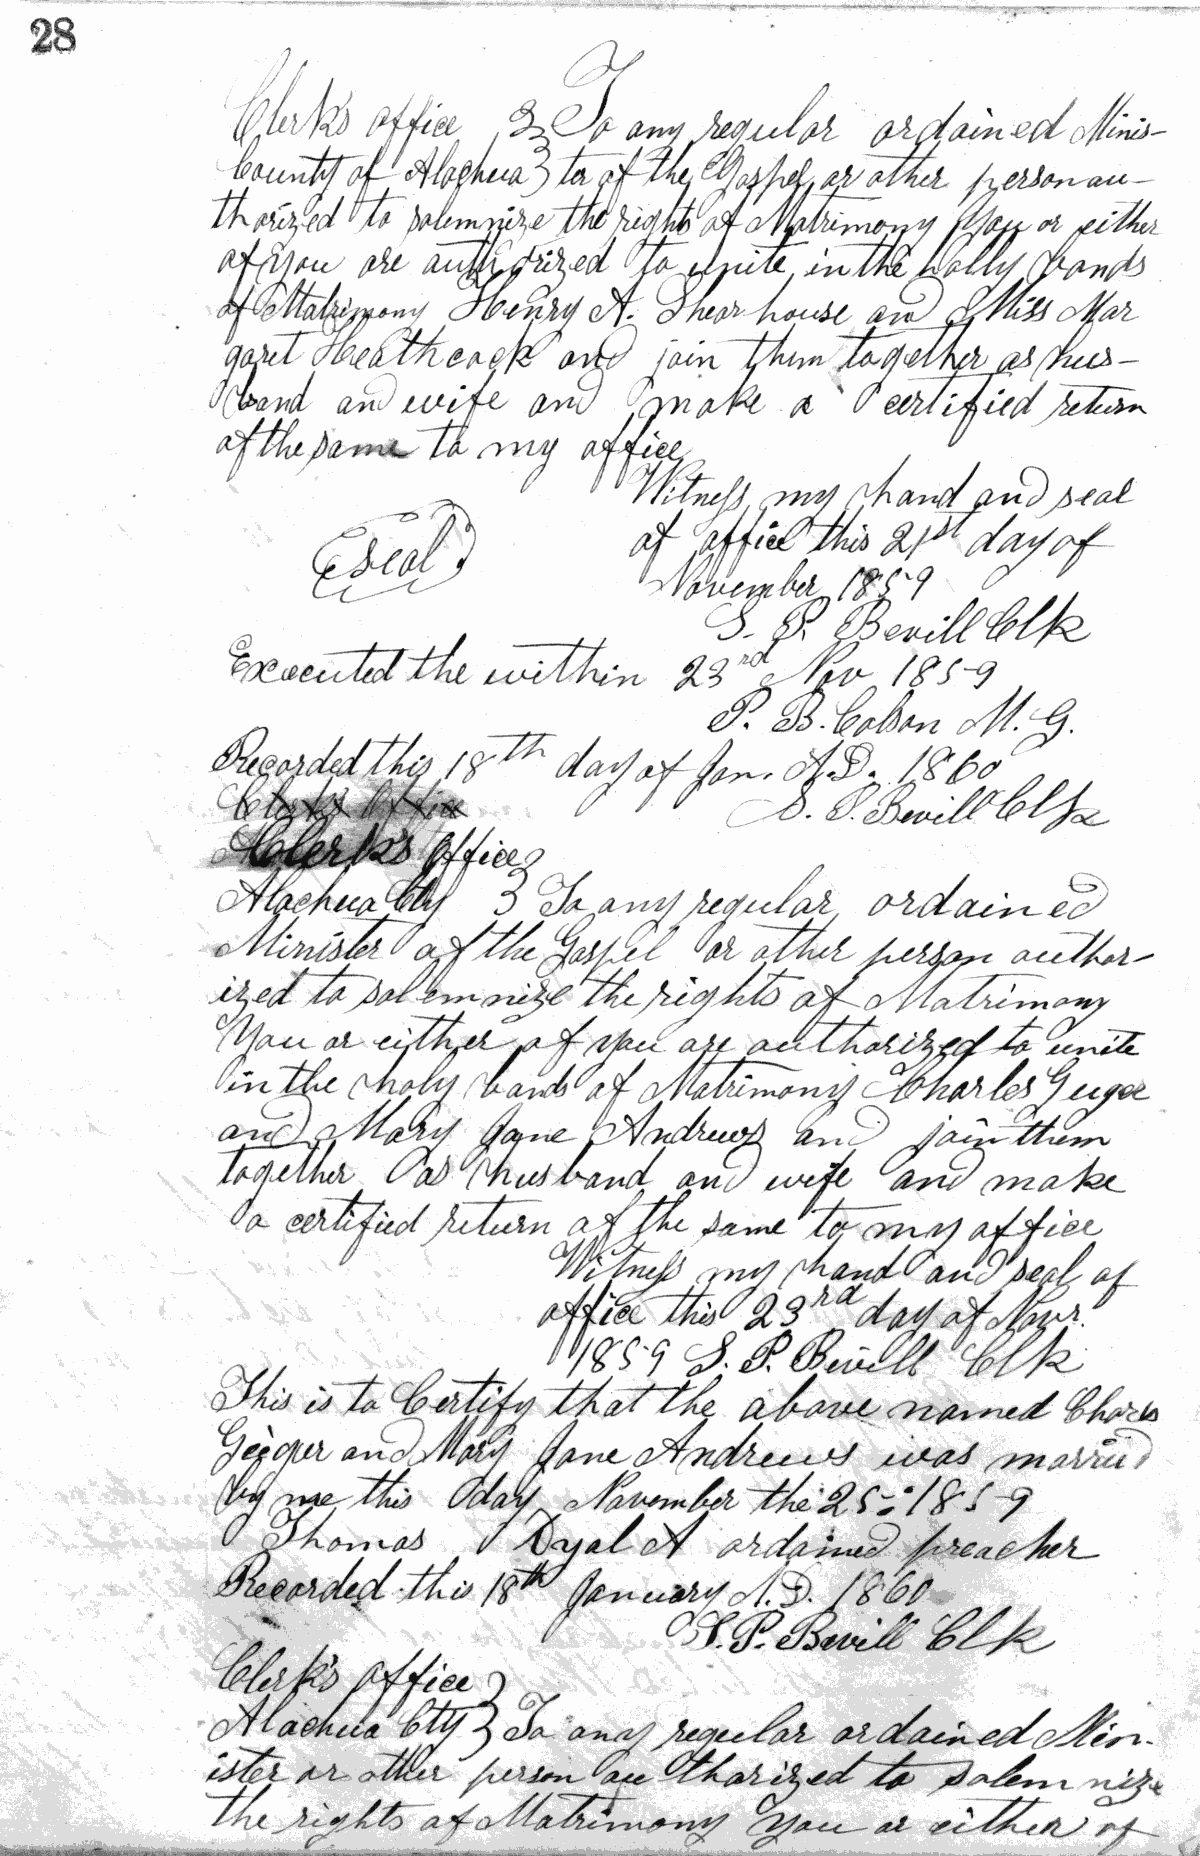 28
Clerk's office } To any regular ordained Minis-
County of Alachua } ter of the Gospel, or other person au-
thorized to solemnize the rights of Matrimony You or either
of you are authorized to unite in the holly bonds
of Matrimony Henry A. Shearhouse and Miss Mar
garet Heathcock and join them together as hus-
band and wife and make a certified return
of the same to my office
Witness my hand and seal
of office this 21st day of
(seal)
November 1859
S. P. Bevill Clk
Executed the within 23rd Nov 1859
P. B. Colson M. G.
Recorded this 18th day of Jan. A.D. 1860
Clerk's Office
S. P. Bevill Clk
Clerk's Office }
Alachua Cty } To any regular ordained
Minister of the Gospel or other person author-
ized to solemnize the rights of Matrimony
You or either of you are authorized to unite
in the holy bands of Matrimony Charles Geiger
and Mary Jane Andrews and join them
together as husband and wife and make
a certified return of the same to my office
Witness my hand and seal of
office this 23rd day of Novr.
1859 S. P. Bevill Clk
This is to Certify that the above named Charls
Geiger and Mary Jane Andrews was married
by me this day November the 25: 1859
Thomas Dyal A ordained preacher
Recorded this 18th January A.D. 1860
S. P. Bevill Clk
Clerk's Office }
Alachua Cty } To any regular ordained Min-
ister or other person authorized to solemnize
the rights of Matrimony You or either of